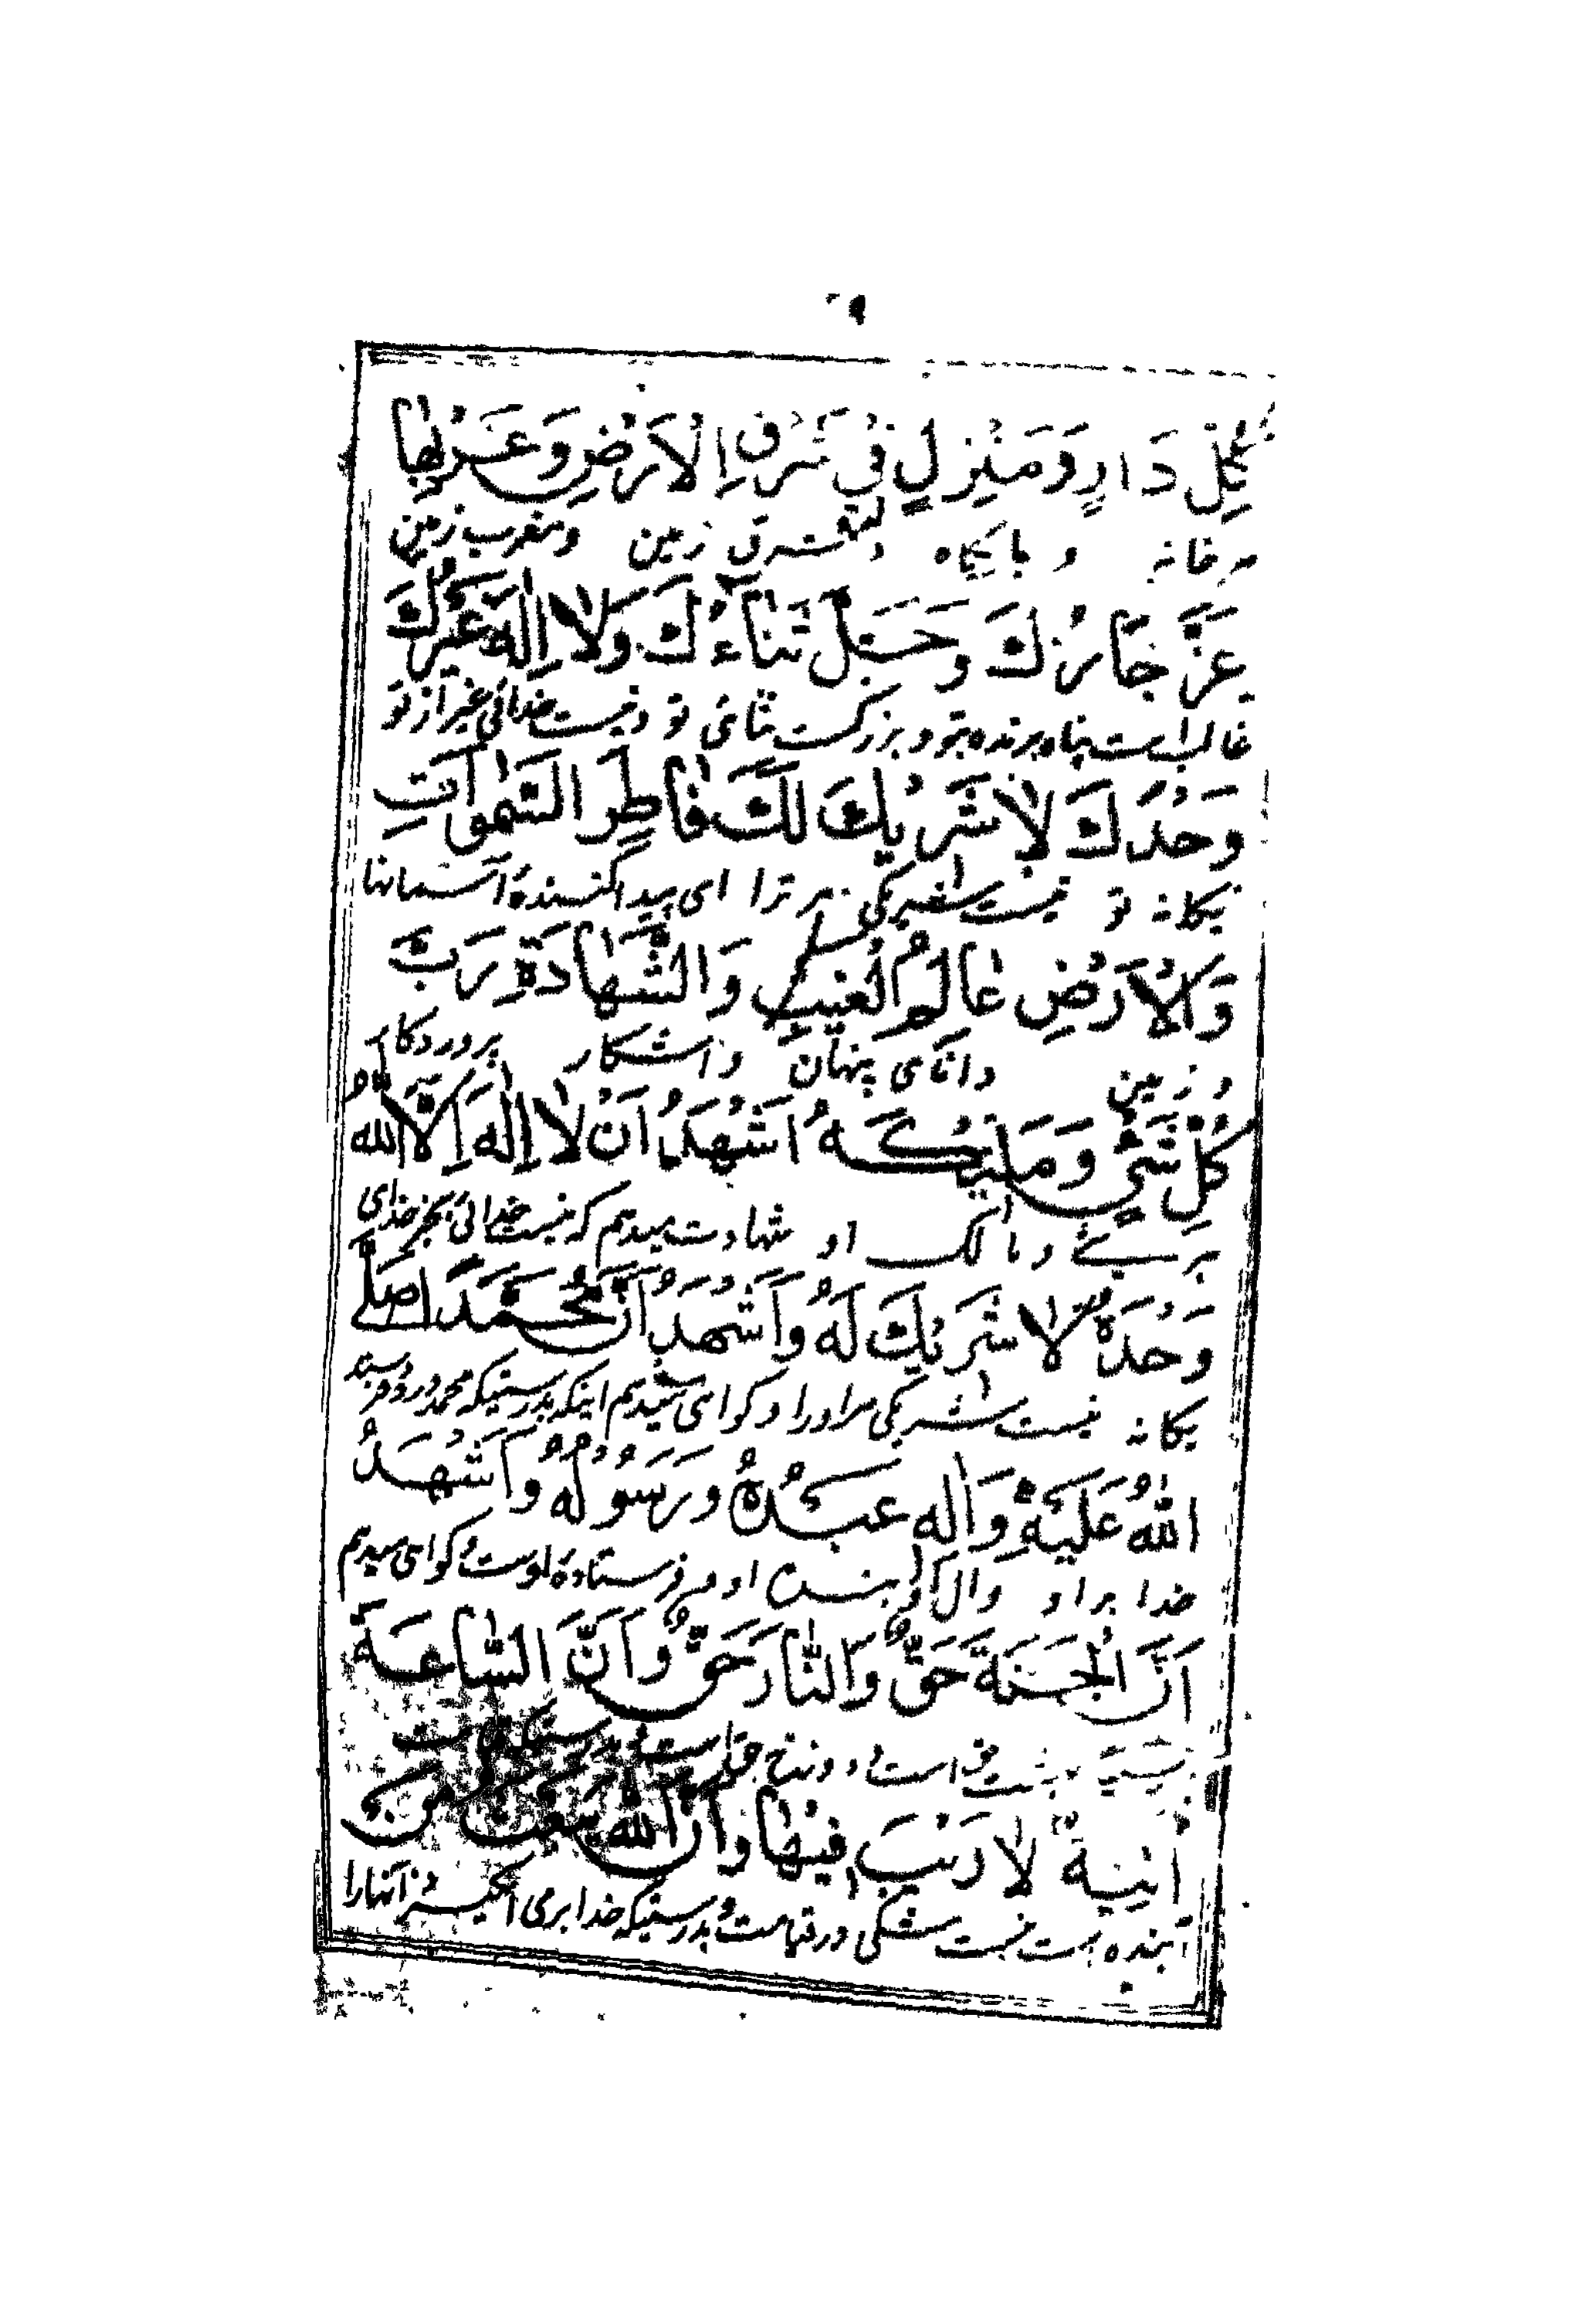 ۲۹
كُلِّ دَارٍ وَمَنْزِلٍ فِي شَرْقِ الْأَرْضِ وَغَرْبِهَا
هر خانه و پایگاه در مشرق زمین و مغرب زمین
عَزَّ جَارُكَ وَجَلَّ ثَنَاءُكَ وَلَا إِلٰهَ غَيْرُكَ
غالب است پناه برنده بتو و بزرگست ثنای تو و نیست خدائی غیر از تو
وَحْدَكَ لَا شَرِيكَ لَكَ فَاطِرَ السَّمٰوَاتِ
یگانه تو نیست شریکی مر ترا ای پیدا کننده آسمانها
وَالْأَرْضِ عَالِمَ الْغَيْبِ وَالشَّهَادَةِ رَبَّ
و زمین دانای پنهان و آشکار پروردگار
كُلِّ شَيْءٍ وَمَلِيكَهُ أَشْهَدُ أَنْ لَا إِلٰهَ إِلَّا اللهُ
هر شیئ و مالک او شهادت میدهم که نیست خدائی بجز خدای
وَحْدَهُ لَا شَرِيكَ لَهُ وَأَشْهَدُ أَنَّ مُحَمَّدًا صَلَّى
یگانه نیست شریکی مر او را و گواهی میدهم اینکه بدرستیکه محمد درود فرستد
اللهُ عَلَيْهِ وَآلِهِ عَبْدُهُ وَرَسُولُهُ وَأَشْهَدُ
خدا بر او و آل او بنده او و فرستاده اوست و گواهی میدهم
أَنَّ الْجَنَّةَ حَقٌّ وَالنَّارَ حَقٌّ وَأَنَّ السَّاعَةَ
بهشت حق است و دوزخ حق است و بدرستیکه
آتِيَةٌ لَا رَيْبَ فِيهَا وَأَنَّ اللهَ يَبْعَثُ مَنْ
آینده است نیست شکی در قیامت و بدرستیکه خدا بر می انگیزد آنها را